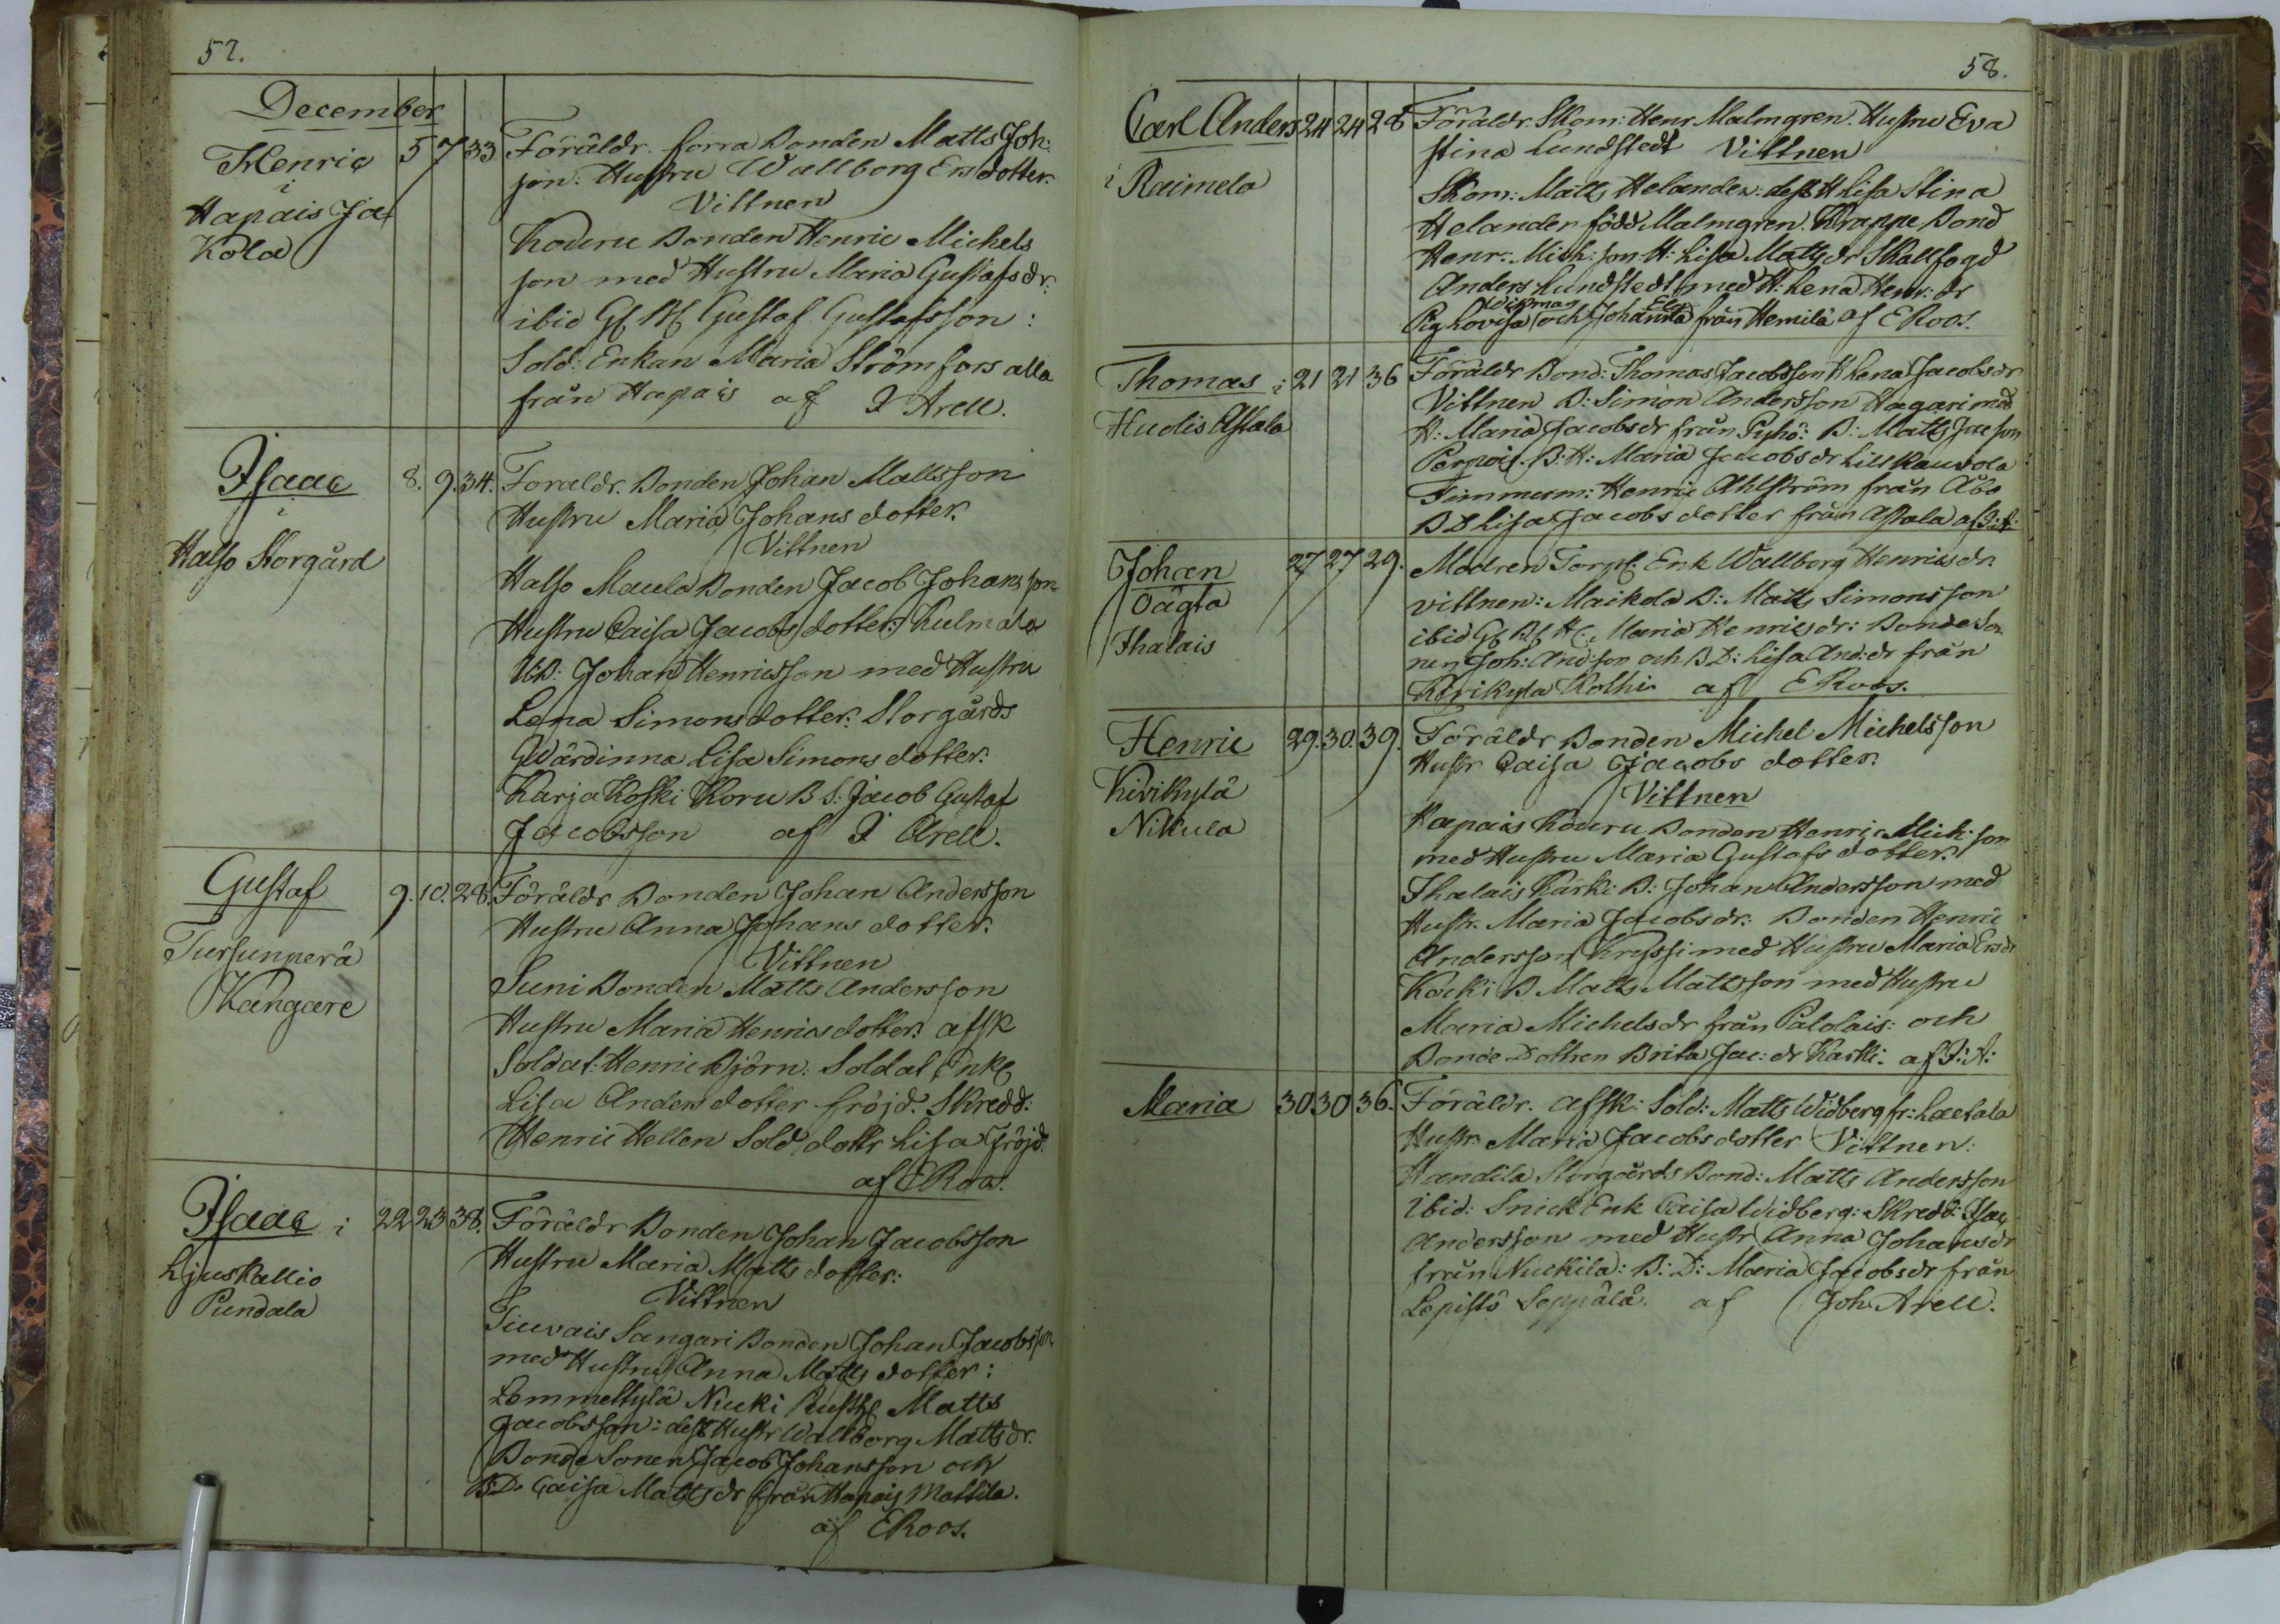 57.
December
Henric 5 7 33 Föräldr. forra Bonden Matts Joh:
i son. Hustru Wallborg Ersdotter.
Hapais Ja
Kola
Vittnen
Kouru Bonden Henric Michels
son med Hustru Maria Gustafsdr:
ibid Gl Bf Gustaf Gustafsson:
Sold: Enkan Maria Strömfors alla
från Hapais af J Arell.
Isaac 8. 9. 34. Foraldr. Bonden Johan Mattsson
i Hustru Maria Johans dotter.
Halso Storgård
Vittnen
Halso Maula Bonden Jacob Johansson
Hustru Caisa Jacobs dotter: Kulmala
Johan Henricsson med Hustru
Lena Simons dotter: Storgårds
Wärdinna Lisa Simons dotter.
Karja Koski Koru B S: Jacob Gustaf
Jacobsson af J Arell.
Gustaf 9. 10. 28. Föräldr Bonden Johan Andersson
Hustru Anna Johans dotter.
Tursunperä
Kangare
Vittnen
Suni Bonden Matts Andersson
Hustru Maria Henricsdotter: afsk
Soldat: Henric Björn: Soldat Enk
Lisa Anders dotter fröjd. Skredd:
Henric Hellen Sold dottr Lisa Fröjd.
af E Roos.
Isaac i 22 23 38. Föräldr Bonden Johan Jacobsson
Hustru Maria Matts dotter:
Ljuskallio
Pundala
Vittnen
Tiuvais Sangari Bonden Johan Jacobsson
med Hustru Anna Matts dotter:
Lemmelkylä Niuki Rusth Matts
Jacobsson: dess Hustr Wallborg Mattsdr.
Bonde Sonen Jacob Johansson och
B.D. Caisa Mattsdr från Hapais Mattila.
af E Roos.
58.
Carl Anders 24 24 28 Föräldr. Skom: Henr Malmgren. Hustru Eva
stina Lundstedt Vittnen
i Raimela
Skom: Matts Helander: dess H Lisa Stina
Helander född Malmgren. Krappe Bond
Henr: Mich: son H: Lisa Mattsdr Skallfogd
Anders Lundstedt med H: Lena Henr: dr
Wikman
Pig Lovisa och Johanna från Hemilä af E Roos.
Thomas i 21 21 36 Föräldr Bond: Thomas Jacobsson H Lena Jacobsdr
Hudis Astala
Vittnen B: Simon Andersson Hagari med
H: Maria Jacobsdr från Pyhö: B: Matts Jacson
B: H: Maria Jacobsdr Lill Kauvola
Timmerm: Henric Ahlström från Åbo
B D Lisa Jacobs dotter från Astala af J: A:
Johan 27 27 29. Modren Torp: Enk Wallborg Henricsdr
Vägla
Ihalais
vittnen: Maikola B: Matts Simonsson
ibid Gl Bf H: Maria Henricsdr: Bonde So
nen Joh: And: son och B D: Lisa And: dr från
Kivikyla Kolhi af E Roos.
Henric 29. 30. 39. Föräldr Bonden Michel Michelsson
Hustr Caisa Jacobs dotter.
Kivikylä
Nikula
Vittnen
Hapais Kouru Bonden Henric Mich: son
med Hustru Maria Gustafs dotter.
Ihalais Kärki B: Johan Andersson med
Hustr. Maria Jacobsdr. Bonden Henric
Andersson Kryssi med Hustru Maria Ersdr
Kocki B Matts Mattsson med Hustru
Maria Michelsdr från Palolais: och
Bonde Dottren Brita Jac: dr Karkki. af J: A:
Maria 30 30 36. Föräldr. afsk: Sold: Matts Widberg fr: Laetala
Hustr. Maria Jacobs dotter Vittnen:
Kandila Storgårds Bond: Matts Andersson
ibid: Snick Enk Caisa Widberg: Skredd: Isac
Andersson med Hustr Anna Johansdr
från Nuckila: B: D: Maria Jacobsdr från
Lepistö Seppälä. af Joh Arell.